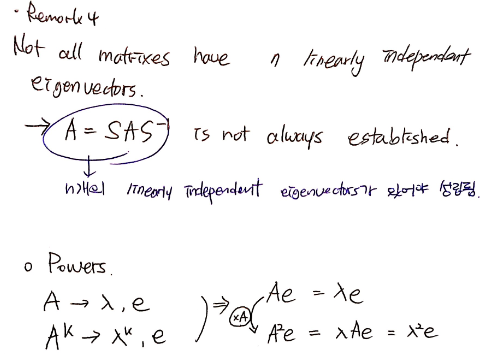 · Remark 4
Not all matrixes have n linearly independent
eigenvectors.
→ A = SΛS⁻¹ is not always established.
n개의 linearly independent eigenvectors가 있어야 성립됨.
o Powers.
A → λ, e ⇒ Ae = λe
Aᵏ → λᵏ, e (xA) A²e = λAe = λ²e